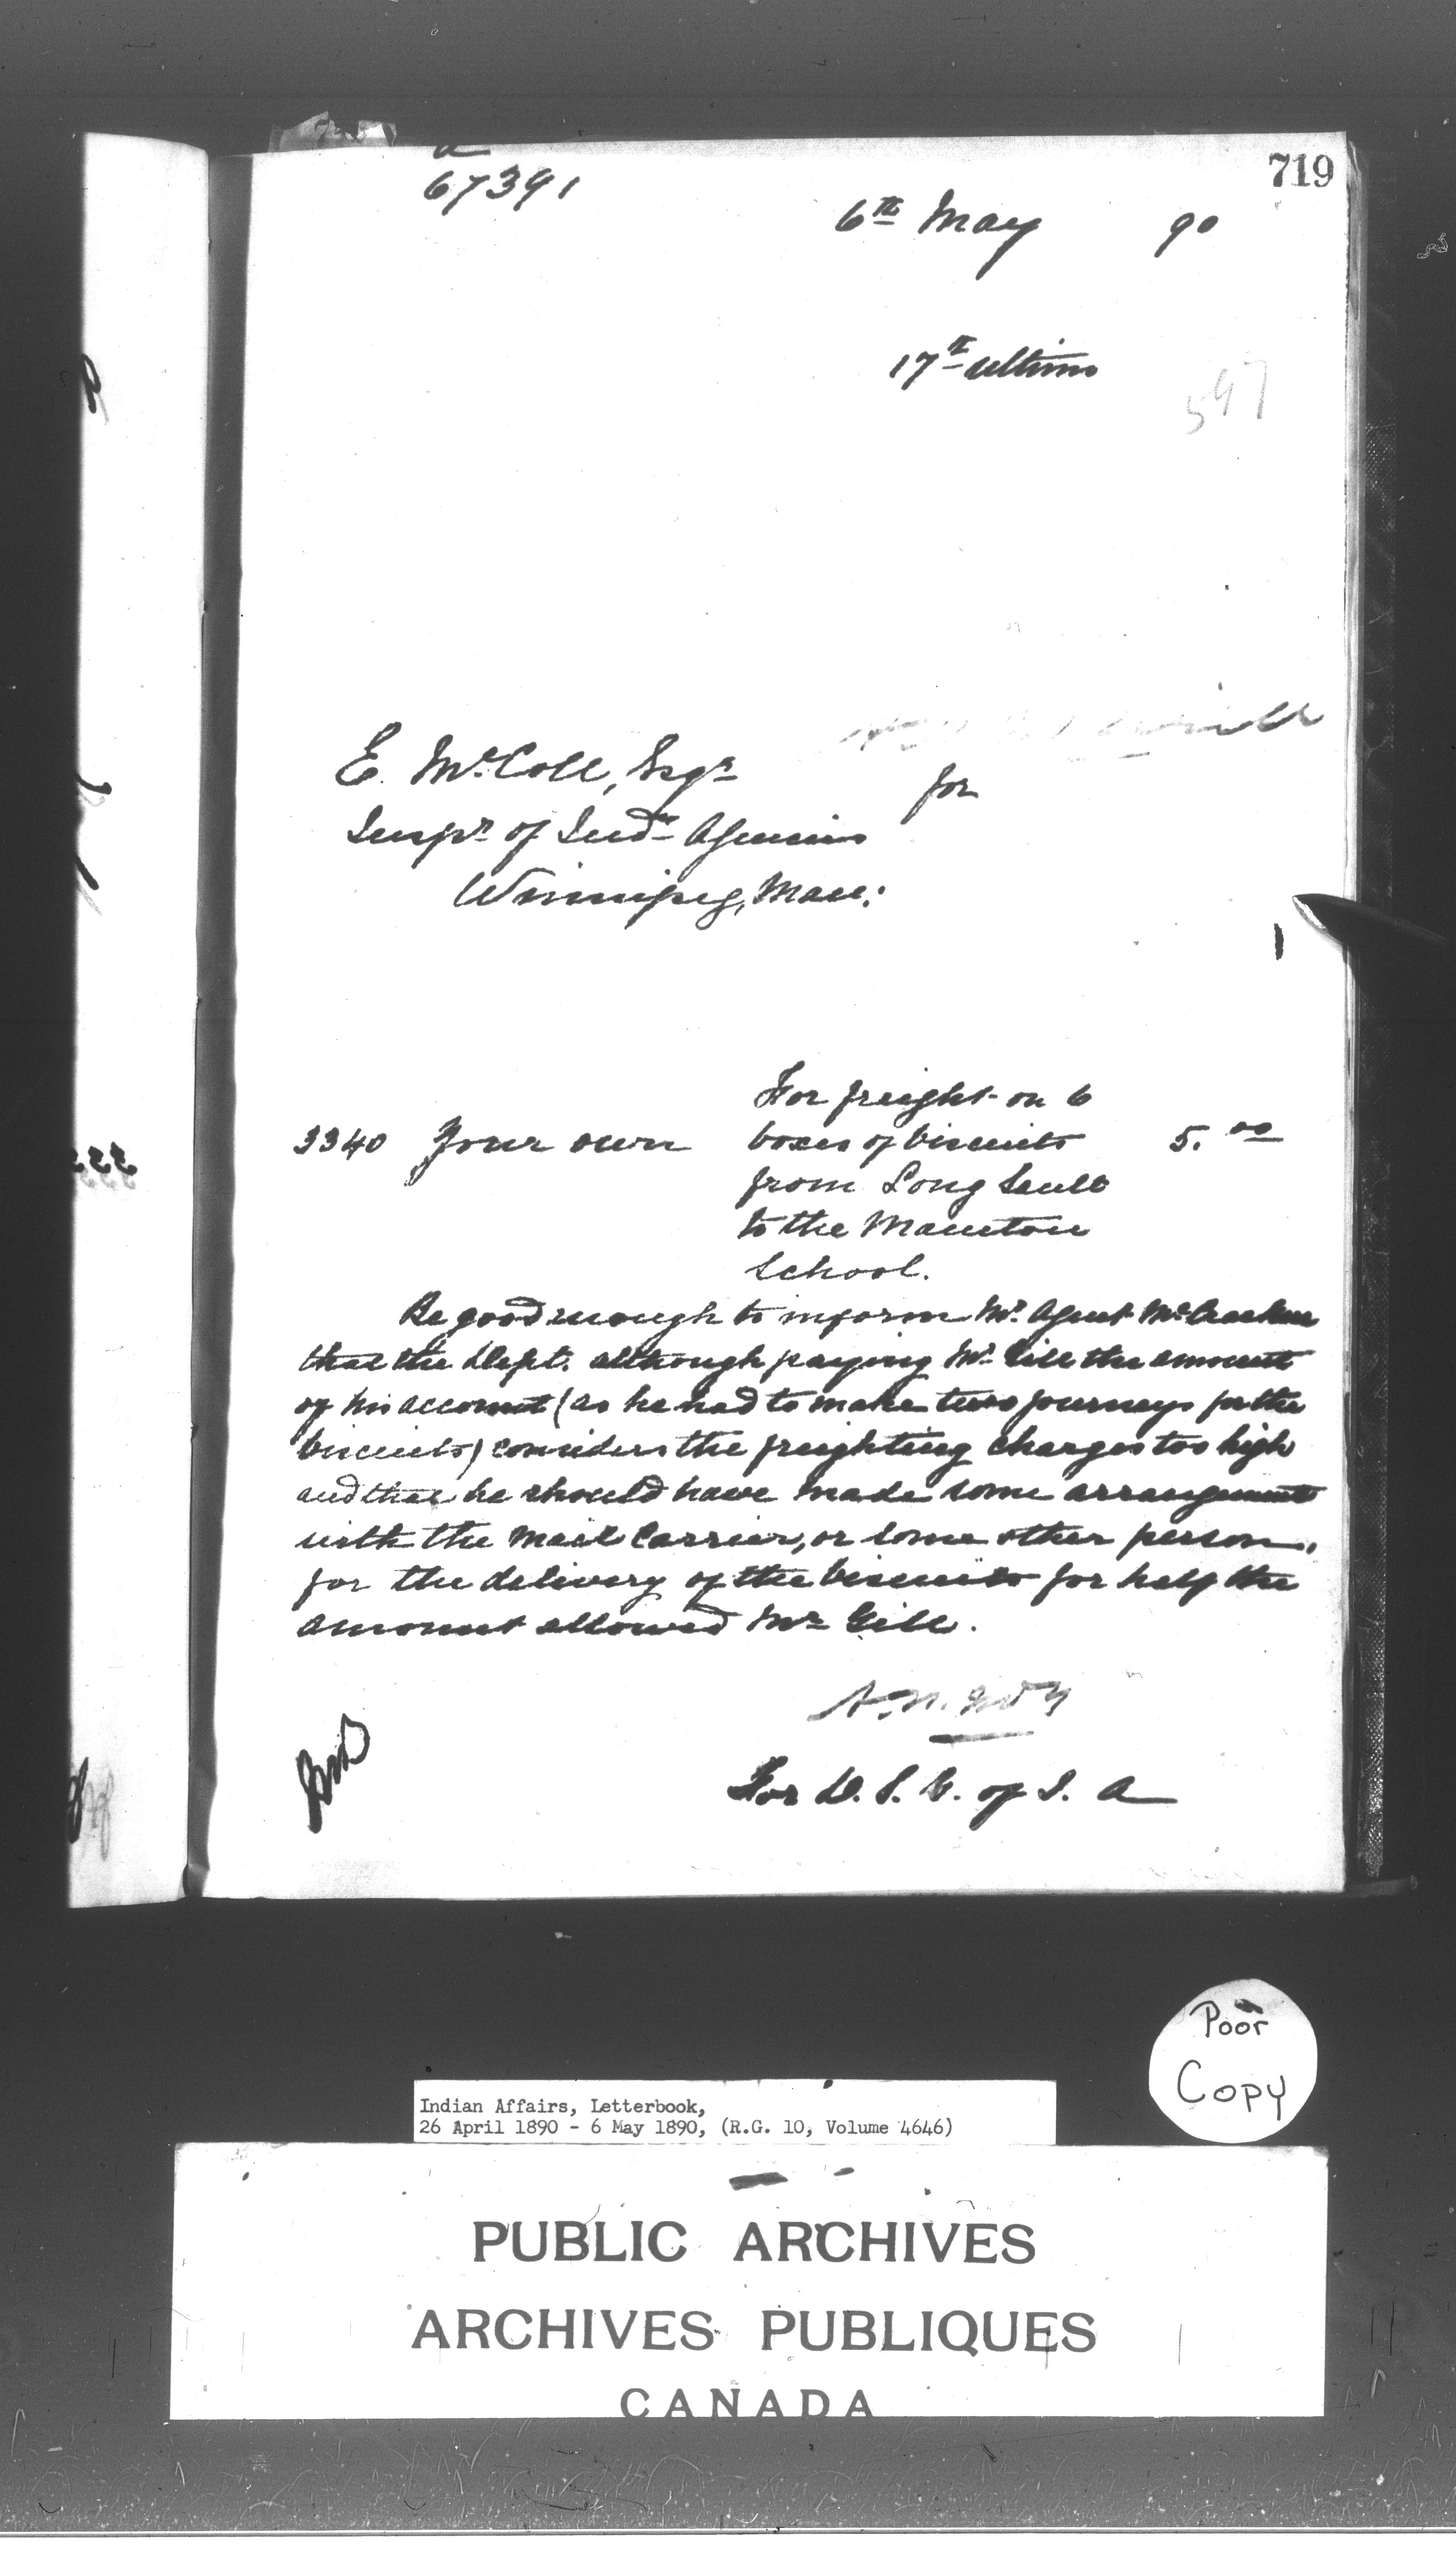 719
67391
6th May 90
17th ultimo
547
E. McColl, Esqr
for
Inspr of Indn Agencies
Winnipeg, Man:
For freight on 6
3340 Your own boxes of biscuits 5.00
from Long Sault
to the Manitou
School.
Be good enough to inform Mr. Agent McCracken
that the Dept. although paying Mr Gill the amount
of his account (as he had to make two journeys for the
biscuits) considers the freighting charges too high
and that he should have made some arrangements
with the Mail Carrier, or some other person,
for the delivery of the biscuits for half the
amount allowed Mr Gill.
For D.S.G. of I.A
Poor
Copy
Indian Affairs, Letterbook,
26 April 1890 - 6 May 1890, (R.G. 10, Volume 4646)
PUBLIC ARCHIVES
ARCHIVES PUBLIQUES
CANADA